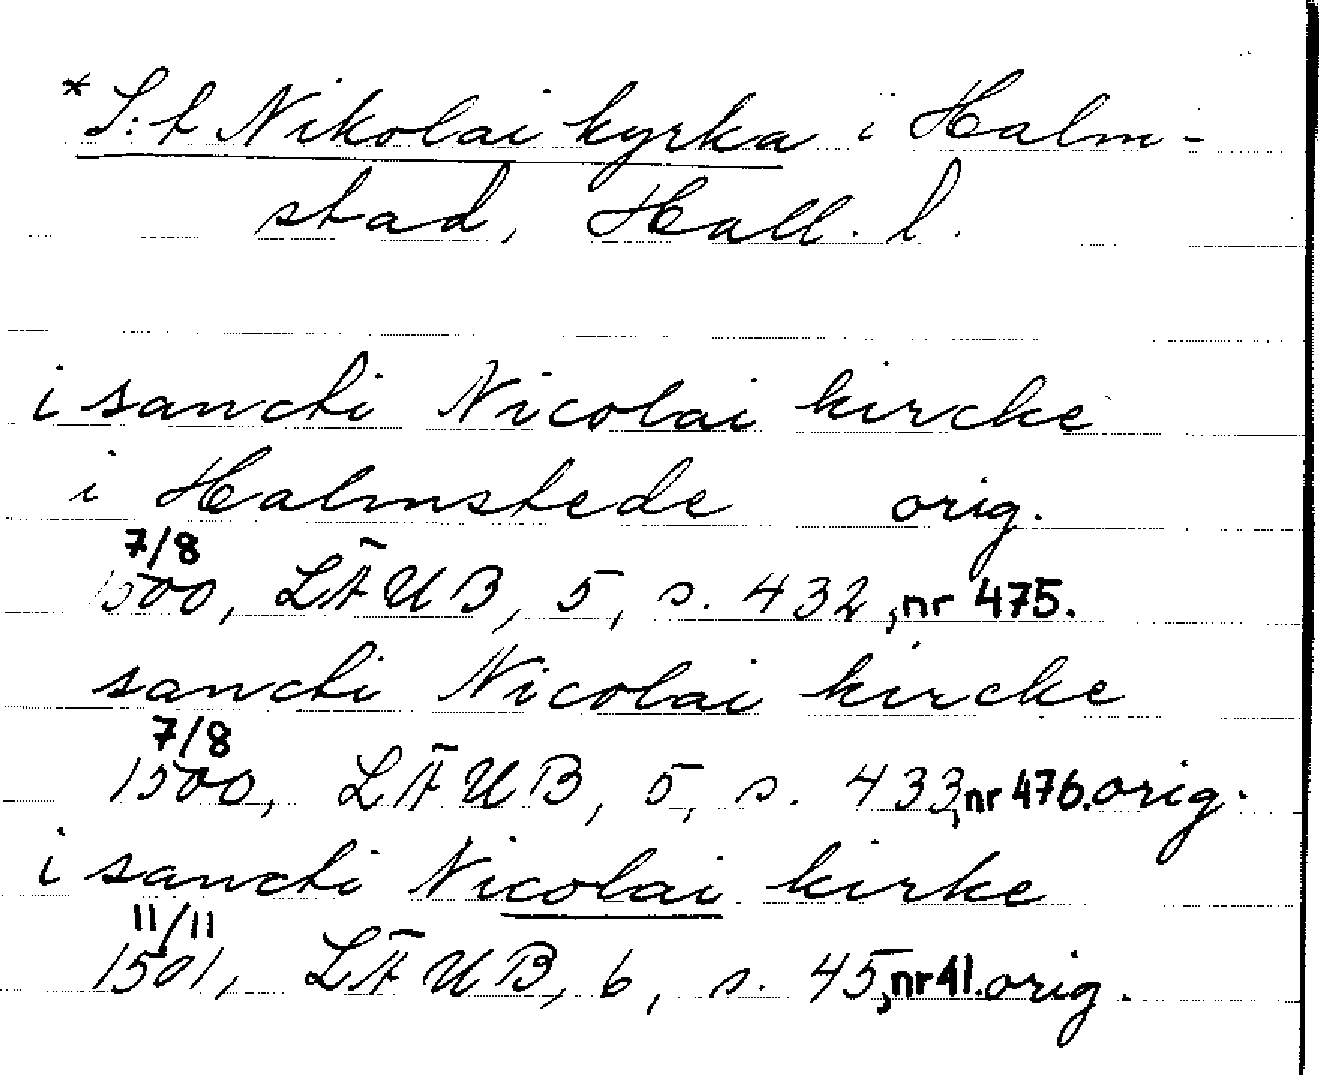 *S:t Nikolai kyrka i Halm-
stad, Hall. l.
i sancti Nicolai kircke
i Halmstede orig.
7/8
1500, LÄUB, 5, s. 432, nr 475.
sancti Nicolai kircke
7/8
1500, LÄUB, 5, s. 433, nr 476. orig.
i sancti Nicolai kirke
11/11
1501, LÄUB, 6, s. 45, nr 41. orig.